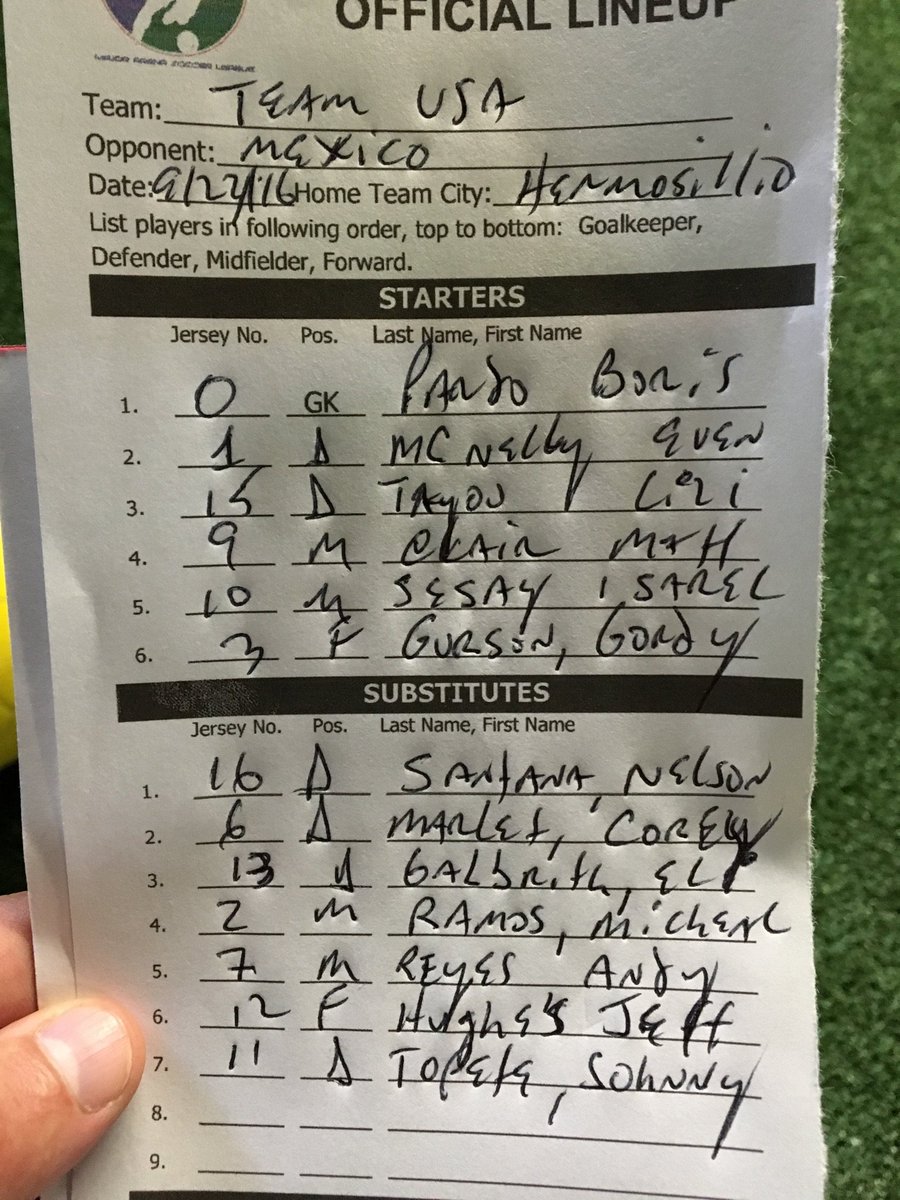 OFFICIAL LINEUP
MAJOR ARENA SOCCER LEAGUE
Team: TEAM USA
Opponent: MEXICO
Date: 9/27/16 Home Team City: HERMOSillO
List players in following order, top to bottom: Goalkeeper,
Defender, Midfielder, Forward.
STARTERS
Jersey No. Pos. Last Name, First Name
1. 0 GK PARDO BORiS
2. 1 D MCNElly EVEN
3. 15 D TAyOU
4. 9 M CLAIR MATH
5. 10 M SESAY ISAREL
6. 3 F GURSON, GORDY
SUBSTITUTES
Jersey No. Pos. Last Name, First Name
1. 16 D SANTANA, NELSON
2. 6 D MARLET, COREY
3. 13 M GALBRITH, ELI
4. 2 M RAMOS, MiCHEAL
5. 7 M REYES ANDY
6. 12 F HUghE'S JEFF
7. 11 D TOPETE, SOHNNY
8.
9.